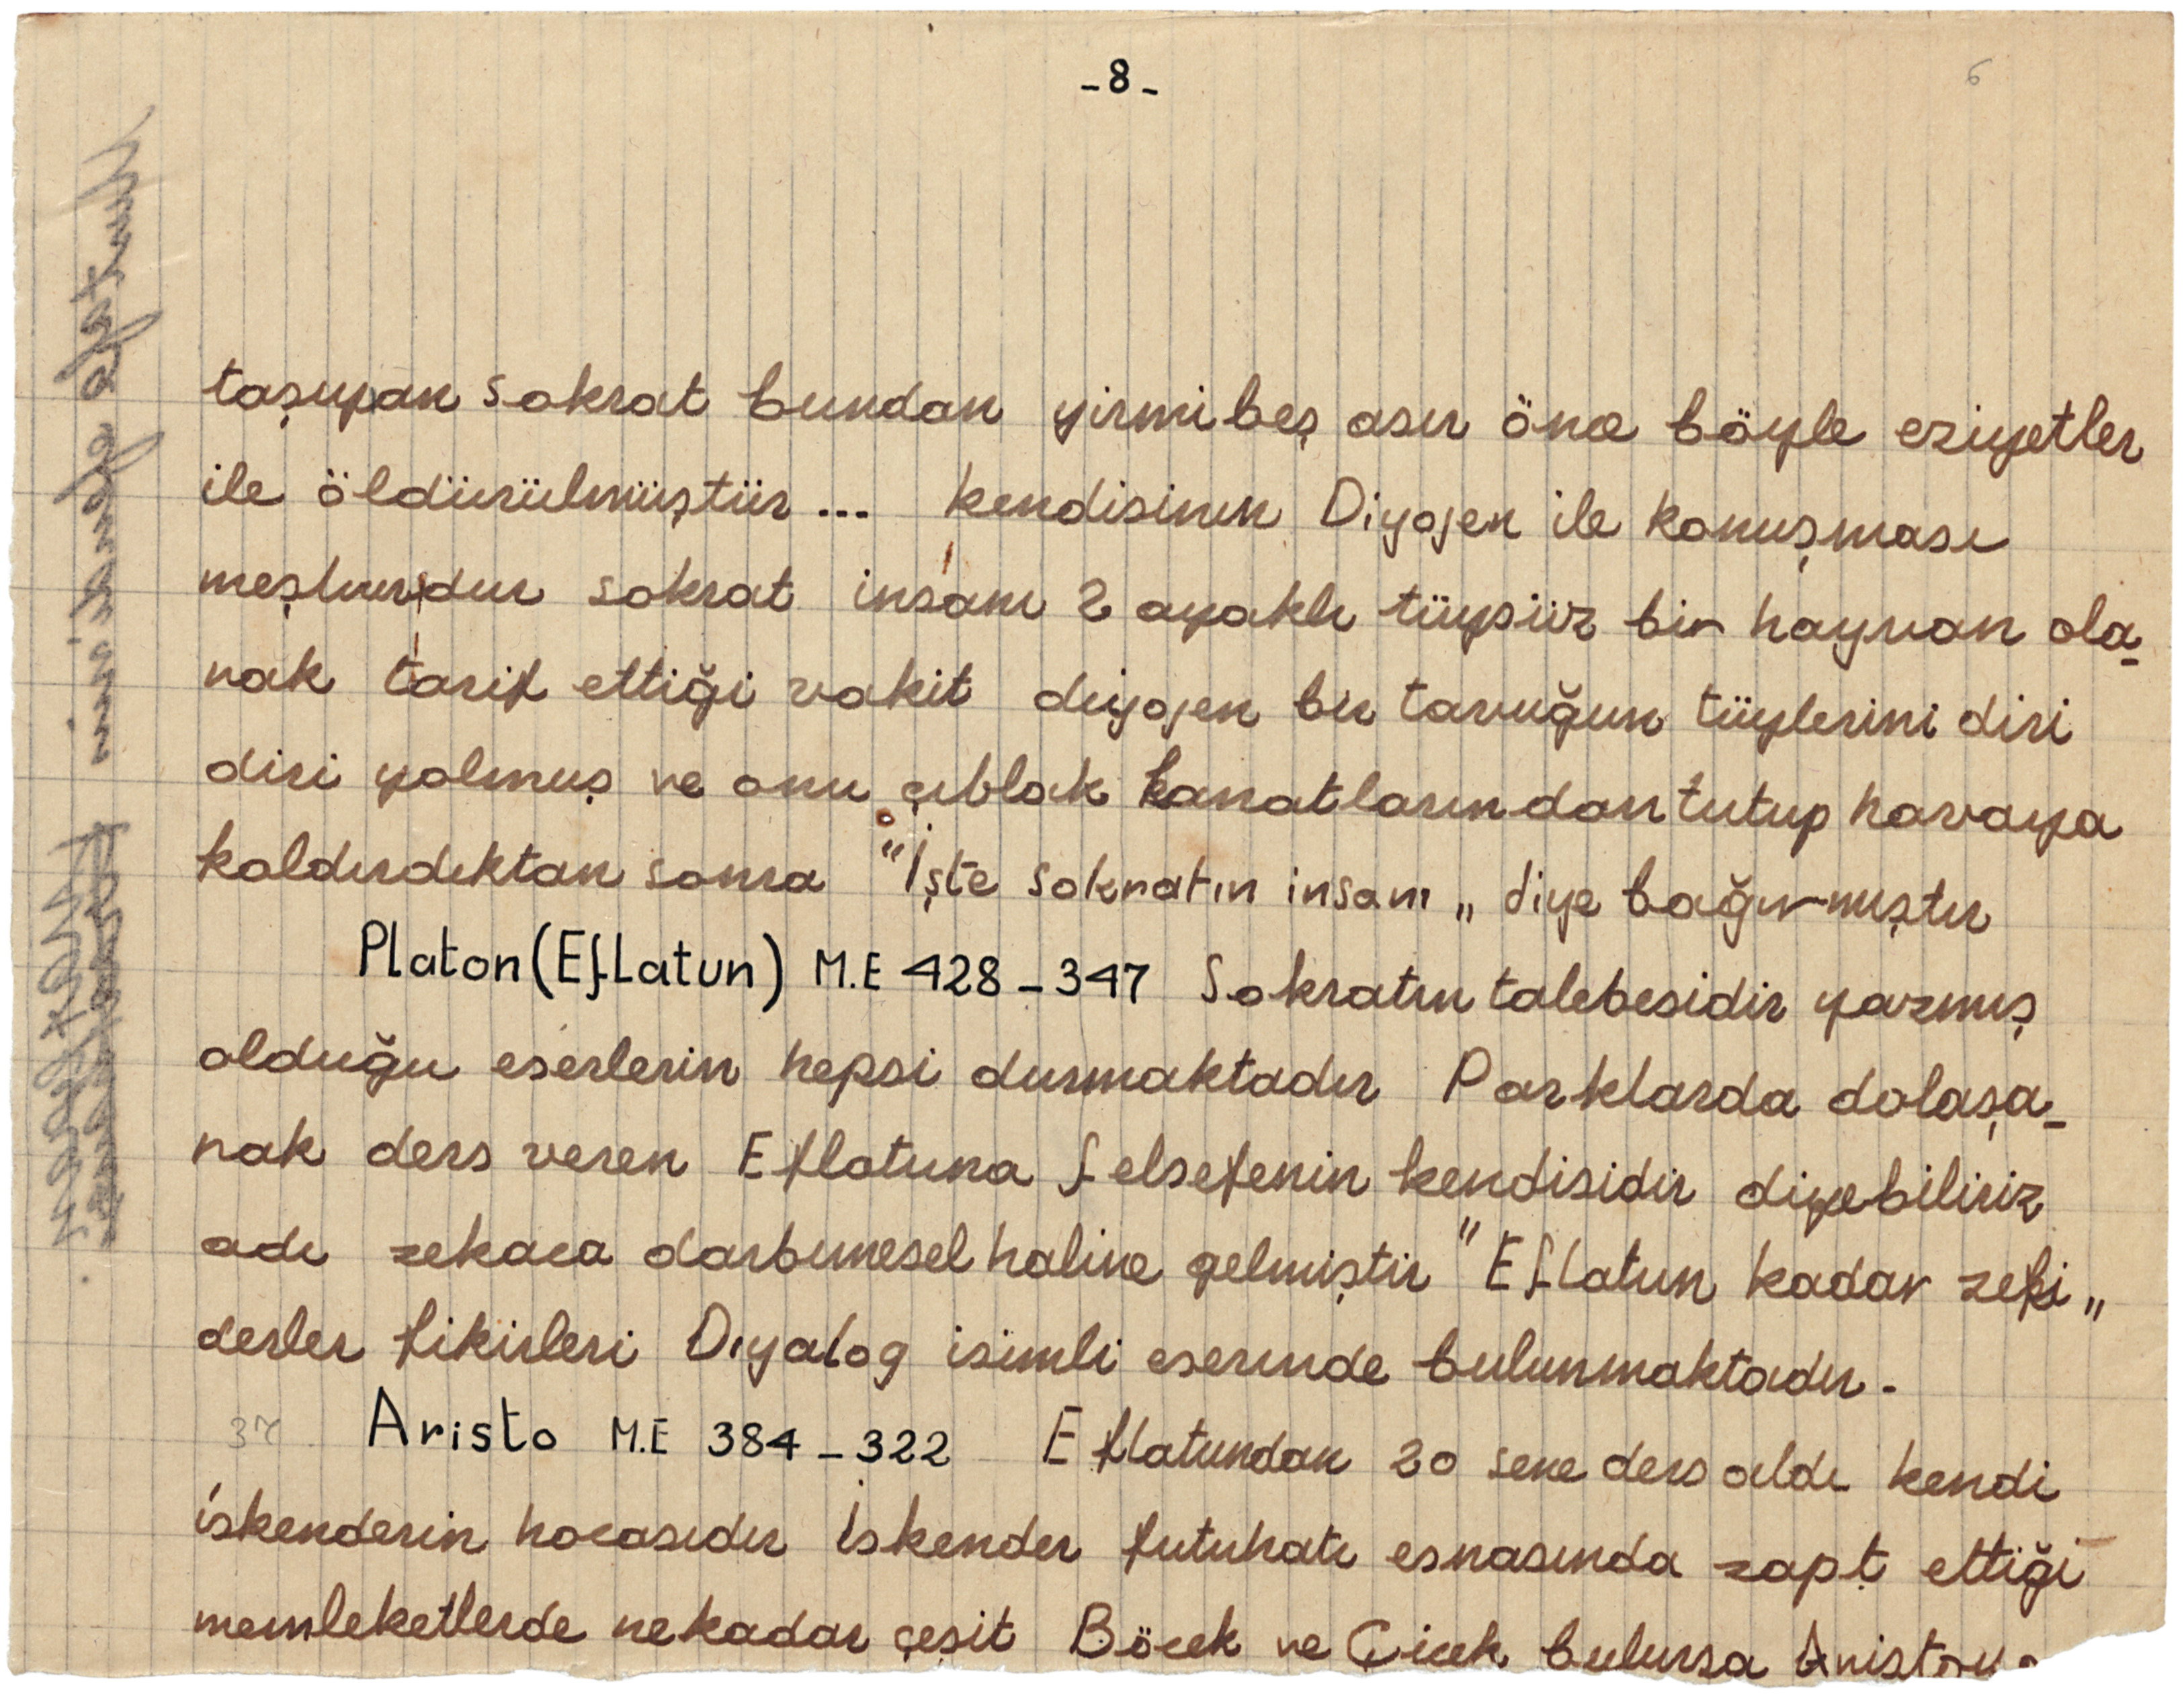 -8-
6
taşıyan Sokrat bundan yirmibeş asır önce böyle eziyetler
ile öldürülmüştür... kendisinin Diyojen ile konuşması
meşhurdur sokrat insanı 2 ayaklı tüysüz bir hayvan ola-
rak tarif ettiği vakit diyojen bir tavuğun tüylerini diri
diri yolmuş ve onu çıblak kanatlarından tutup havaya
kaldırdıktan sonra "İşte sokratın insanı„ diye bağırmıştır
Platon (Eflatun) M.E 428-347 Sokratın talebesidir yazmış
olduğu eserlerin hepsi durmaktadır Parklarda dolaşa-
rak ders veren Eflatuna felsefenin kendisidir diyebiliriz
adı zekaca darbımesel haline gelmiştir "Eflatun kadar zeki„
derler fikirleri Dıyalog isimli eserinde bulunmaktadır.
37 Aristo M.E 384-322 Eflatundan 20 sene ders aldı kendi
iskenderin hocasıdır İskender futuhatı esnasında zapt ettiği
memleketlerde nekadar çeşit Böcek ve Çicek bulursa Aristoya